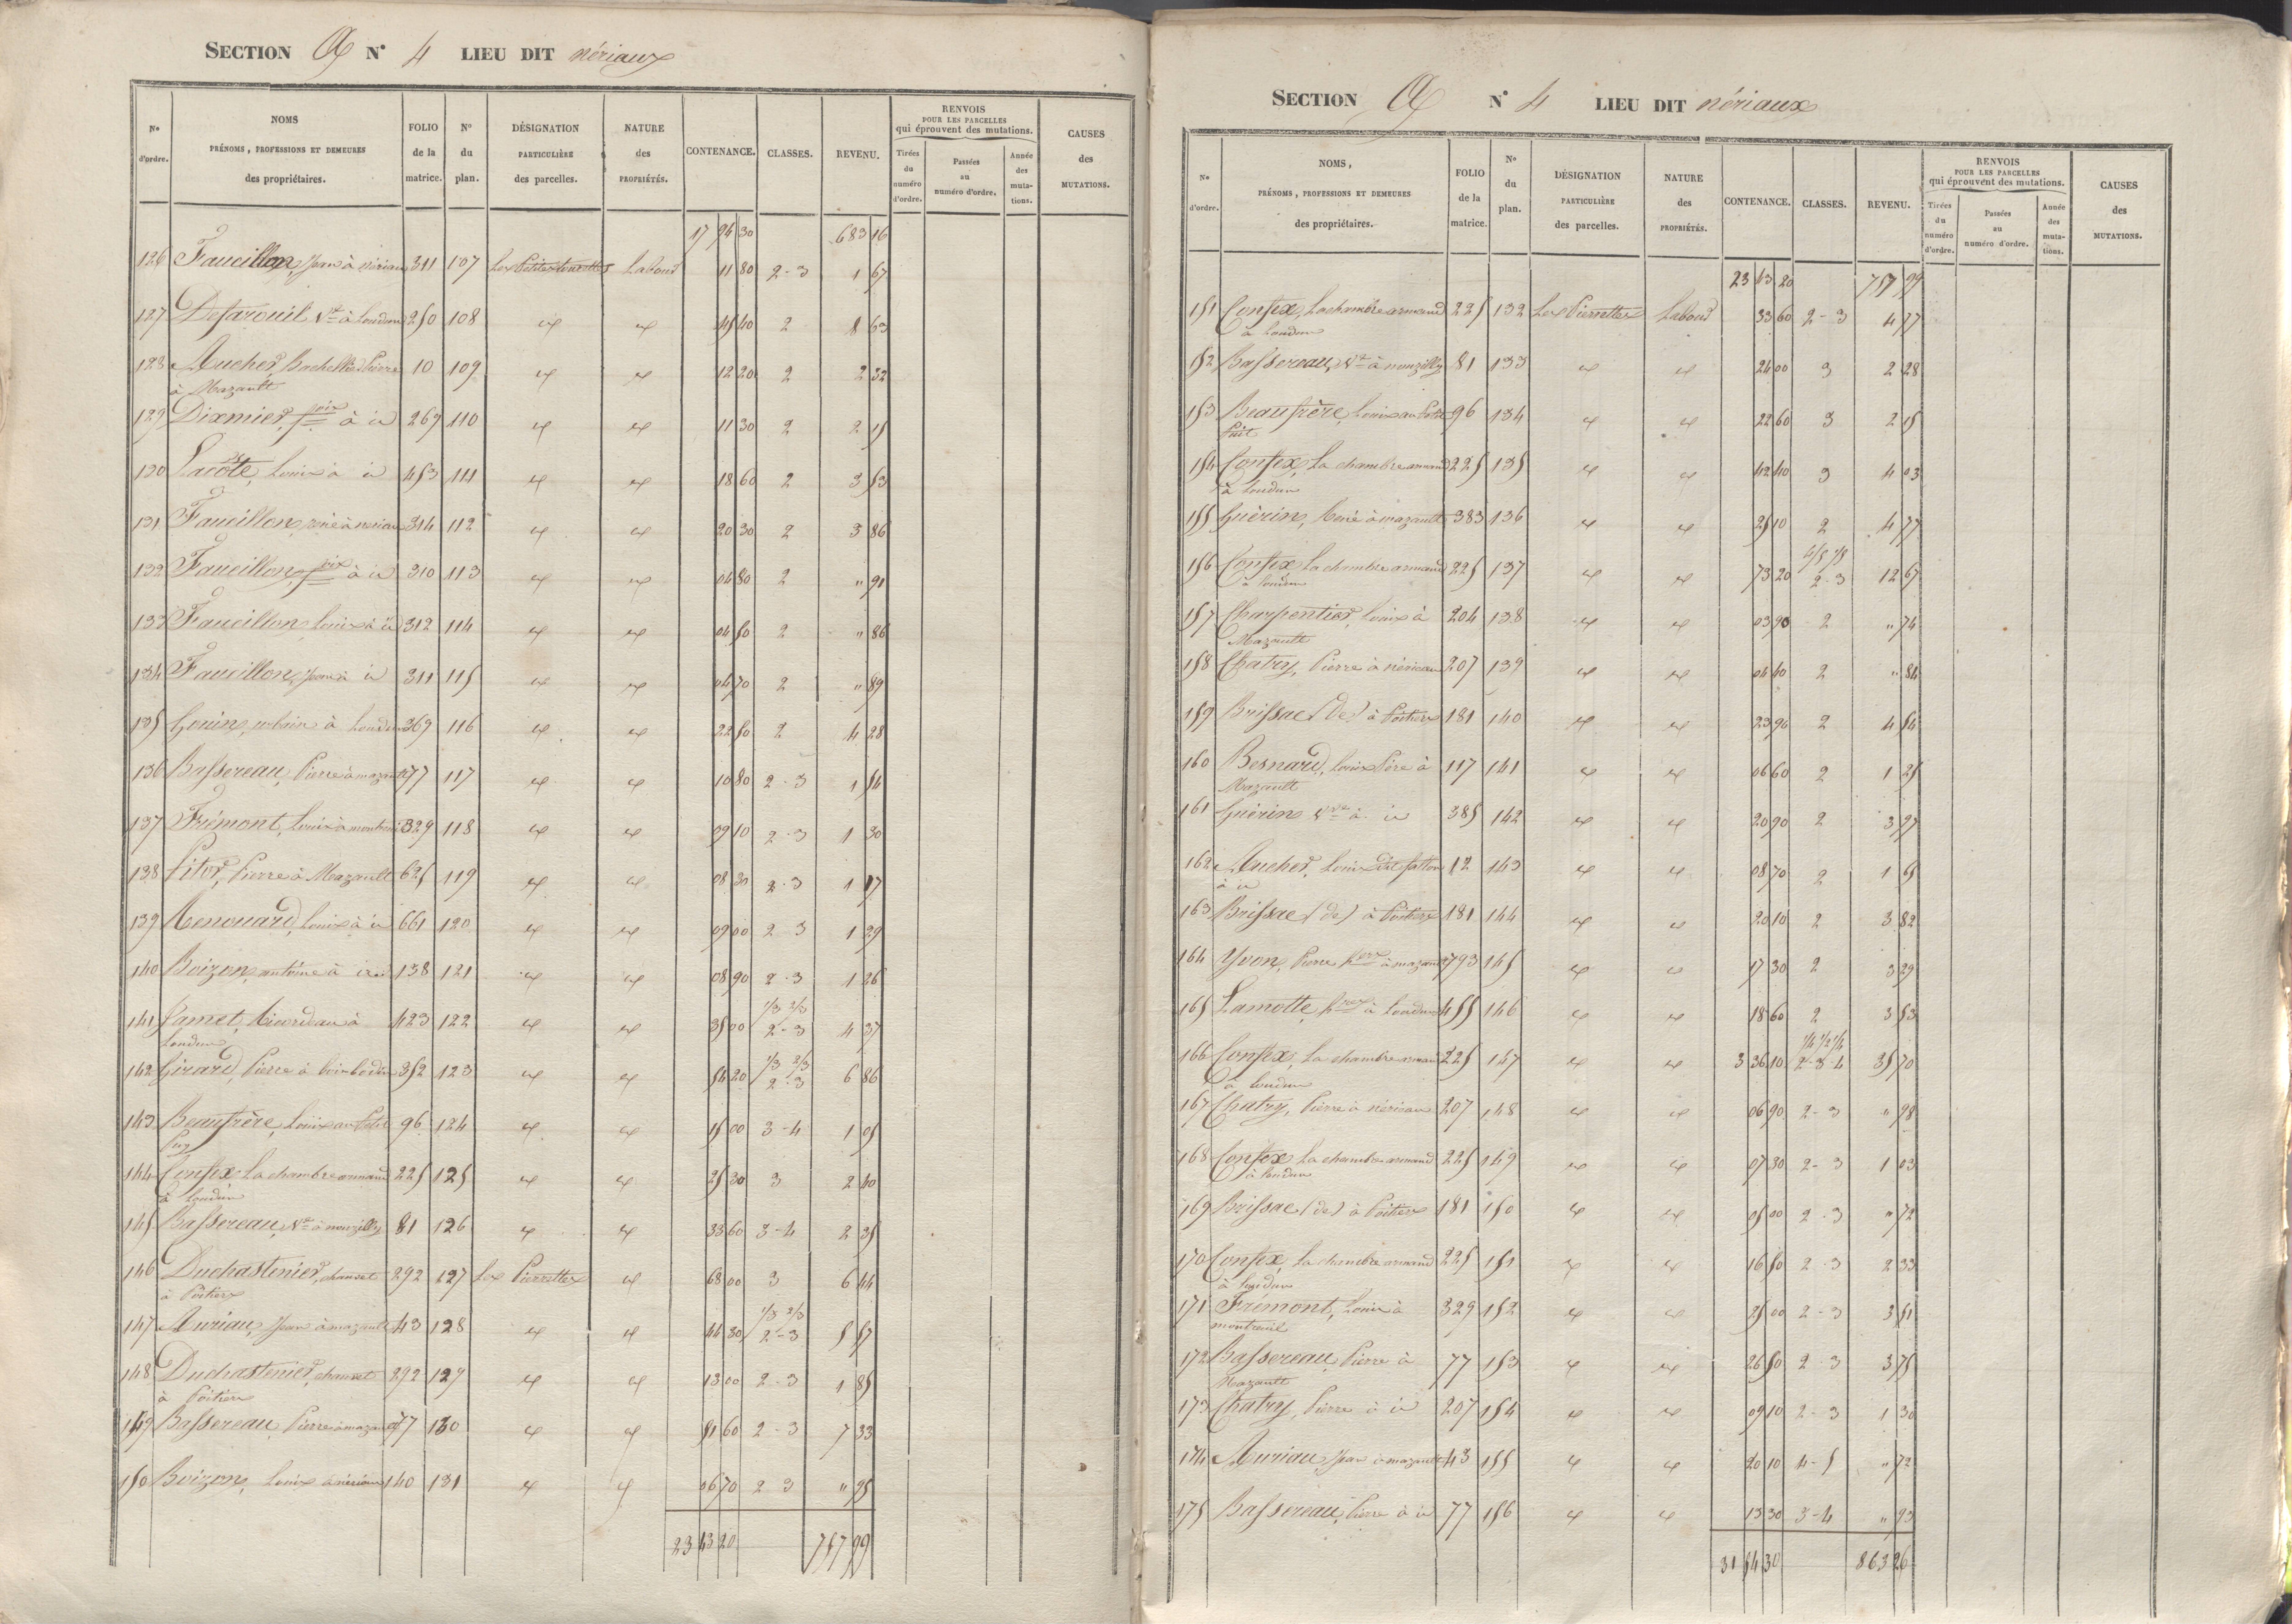 SECTION A N° 4 LIEU DIT nériaux
N° d'ordre. NOMS PRÉNOMS, PROFESSIONS ET DEMEURES des propriétaires. FOLIO de la matrice. N° du plan. DÉSIGNATION PARTICULIÈRE des parcelles. NATURE des PROPRIÉTÉS. CONTENANCE. CLASSES. REVENU. RENVOIS POUR LES PARCELLES qui éprouvent des mutations. Tirées du numéro d'ordre. Passées au numéro d'ordre. Année des mutations. CAUSES des MUTATIONS.
17 94 30 683 16
126 Faucillon, Jean à nériau 311 107 Les Petites Labour 11 80 2-3 1 67
127 Desarouil Ve à Loudun 250 108 id id 45 40 2 8 63
128 Aucher, Bachellier Pierre 10 109 id id 12 20 2 2 32
à Mazault
129 Dixmier, fois à id 269 110 id id 11 30 2 2 15
130 Lacôte, Louis à id 453 111 id id 18 60 2 3 53
131 Faucillon, rené à nériau 314 112 id id 20 30 2 3 86
132 Faucillon, fois à id 310 113 id id 04 80 2 " 91
133 Faucillon, Louis à id 312 114 id id 04 50 2 " 86
134 Faucillon, Jean à id 311 115 id id 04 70 2 " 89
135 Gouin, urbain à Loudun 369 116 id id 22 50 2 4 28
136 Bassereau, Pierre à mazault 77 117 id id 10 80 2-3 1 54
137 Frémont, Louis à montreuil 329 118 id id 09 10 2-3 1 30
138 Pitor, Pierre à Mazault 625 119 id id 08 30 2-3 1 17
139 Renouard, Louis à id 661 120 id id 09 00 2-3 1 29
140 Boizon, antoine à id 138 121 id id 08 90 2-3 1 26
1/3 2/3
141 Jamet, Ricordeau à 423 122 id id 35 00 2-3 4 37
Loudun
1/3 2/3
142 Girard, Pierre à 352 123 id id 54 20 2-3 6 86
143 Beaufrère, Louis au Petit 96 124 id id 15 00 3-4 1 05
Puy
144 Confex, La chambre armand 225 125 id id 25 30 3 2 40
à Loudun
145 Bassereau, Ve à nouzilly 81 126 id id 33 60 3-4 2 35
146 Duchastenier, chauvet 292 127 Les Pierrettes id 68 00 3 6 44
à Poitiers
1/3 2/3
147 Auriau, Jean à mazault 43 128 id id 44 30 2-3 5 57
148 Duchastenier, chauvet 292 129 id id 13 00 2-3 1 85
à Poitiers
149 Bassereau, Pierre à mazault 77 130 id id 51 60 2-3 7 33
150 Boizon, Louis à nériau 140 131 id id 06 70 2 3 " 95
23 63 20 757 99
SECTION A N° 4 LIEU DIT nériaux
N° d'ordre. NOMS, PRÉNOMS, PROFESSIONS ET DEMEURES des propriétaires. FOLIO de la matrice. N° du plan. DÉSIGNATION PARTICULIÈRE des parcelles. NATURE des PROPRIÉTÉS. CONTENANCE. CLASSES. REVENU. RENVOIS POUR LES PARCELLES qui éprouvent des mutations. Tirées du numéro d'ordre. Passées au numéro d'ordre. Année des mutations. CAUSES des MUTATIONS.
23 63 20 757 99
151 Confex, Lachambre armand 225 132 Les Pierrettes Labour 33 60 2-3 4 77
à Loudun
152 Bassereau, Ve à nouzilly 81 133 id id 24 00 3 2 28
153 Beaufrère, Louis au Petit 96 134 id id 22 60 3 2 15
Puit
154 Confex, La chambre armand 225 135 id id 42 40 3 4 03
à Loudun
155 Guérin, René à mazault 383 136 id id 25 10 2 4 77
4/5 1/5
156 Confex, La chambre armand 225 137 id id 73 20 2-3 12 67
à Loudun
157 Charpentier, Louis à 204 138 id id 03 90 2 " 74
Mazault
158 Chatry, Pierre à nériau 207 139 id id 04 40 2 " 84
159 Brissac (de) à Poitiers 181 140 id id 23 90 2 4 54
160 Besnard, Louis Père à 117 141 id id 06 60 2 1 25
Mazault
161 Guérin Ve à id 385 142 id id 20 90 2 3 97
162 Aucher, Louis dit 12 143 id id 08 70 2 1 65
à id
163 Brissac (de) à Poitiers 181 144 id id 20 10 2 3 82
164 Yvon, Pierre hers à mazault 793 145 id id 17 30 2 3 29
165 Lamotte, hers à Loudun 455 146 id id 18 60 2 3 53
1/4 1/2 1/4
166 Confex, La chambre armand 225 147 id id 3 36 10 2-3-4 35 70
à Loudun
167 Chatry, Pierre à nériau 207 148 id id 06 90 2-3 " 98
168 Confex La chambre armand 225 149 id id 07 30 2-3 1 03
à Loudun
169 Brissac (de) à Poitiers 181 150 id id 05 00 2-3 " 72
170 Confex, La chambre armand 225 151 id id 16 50 2-3 2 33
à Loudun
171 Frémont, Louis à 329 152 id id 25 00 2-3 3 51
montreuil
172 Bassereau, Pierre à 77 153 id id 26 50 2-3 3 75
Mazault
173 Chatry, Pierre à id 207 154 id id 09 10 2-3 1 30
174 Auriau, Jean à mazault 43 155 id id 20 10 4-5 " 72
175 Bassereau, Pierre à id 77 156 id id 13 30 3-4 " 93
31 54 30 863 26